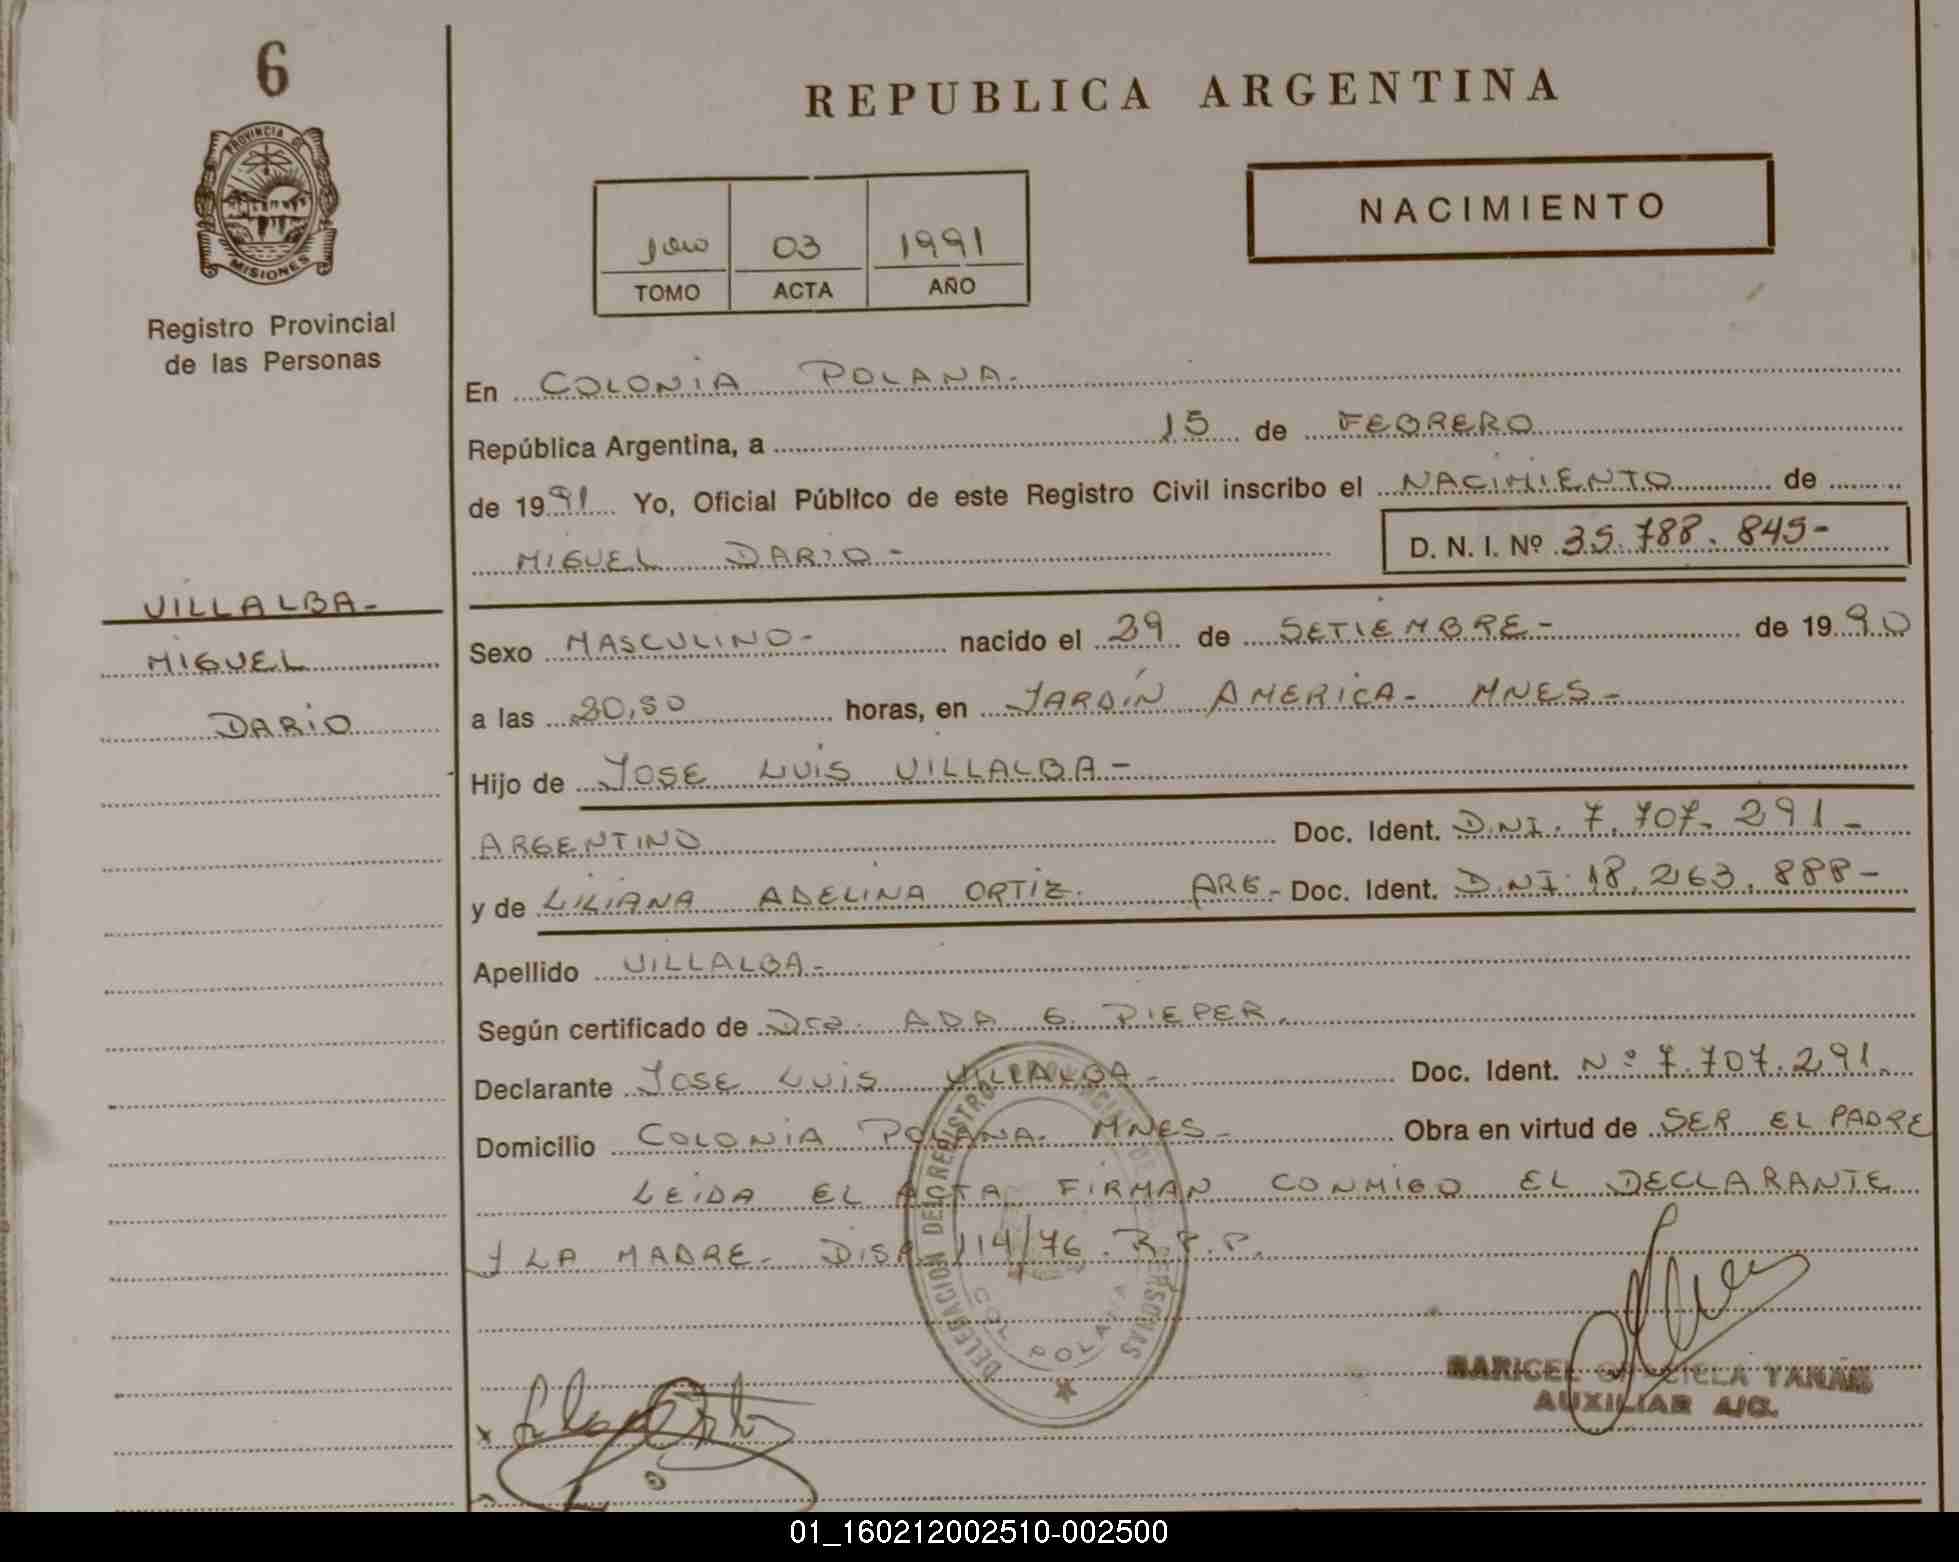 6
PROVINCIA DE
MISIONES
Registro Provincial
de las Personas
VILLALBA-
MIGUEL
DARIO
REPUBLICA ARGENTINA
03 1991
TOMO ACTA AÑO
NACIMIENTO
En COLONIA POLANA.
República Argentina, a 15 de FEBRERO
de 1991 Yo, Oficial Público de este Registro Civil inscribo el NACIMIENTO de
MIGUEL DARIO- D. N. I. Nº 35.788.845-
Sexo MASCULINO- nacido el 29 de SETIEMBRE- de 1990
a las horas, en JARDÍN AMERICA- MNES-
Hijo de JOSE LUIS VILLALBA-
ARGENTINO Doc. Ident. D.NI. 7.707.291-
y de LILIANA ADELINA ORTIZ. ARG- Doc. Ident. D.NI 18.263.888-
Apellido VILLALBA-
Según certificado de Dra. ADA G. PIEPER.
Declarante JOSE LUIS VILLALBA- Doc. Ident. Nº 7.707.291.
Domicilio COLONIA POLANA. MNES- Obra en virtud de SER EL PADRE
LEIDA EL ACTA FIRMAN CONMIGO EL DECLARANTE
Y LA MADRE. DISP. 114/76. R.P.P.
DELEGACION DEL REGISTRO PROVINCIAL DE PERSONAS
COL POLANA
AUXILIAR A/C.
01_160212002510-002500